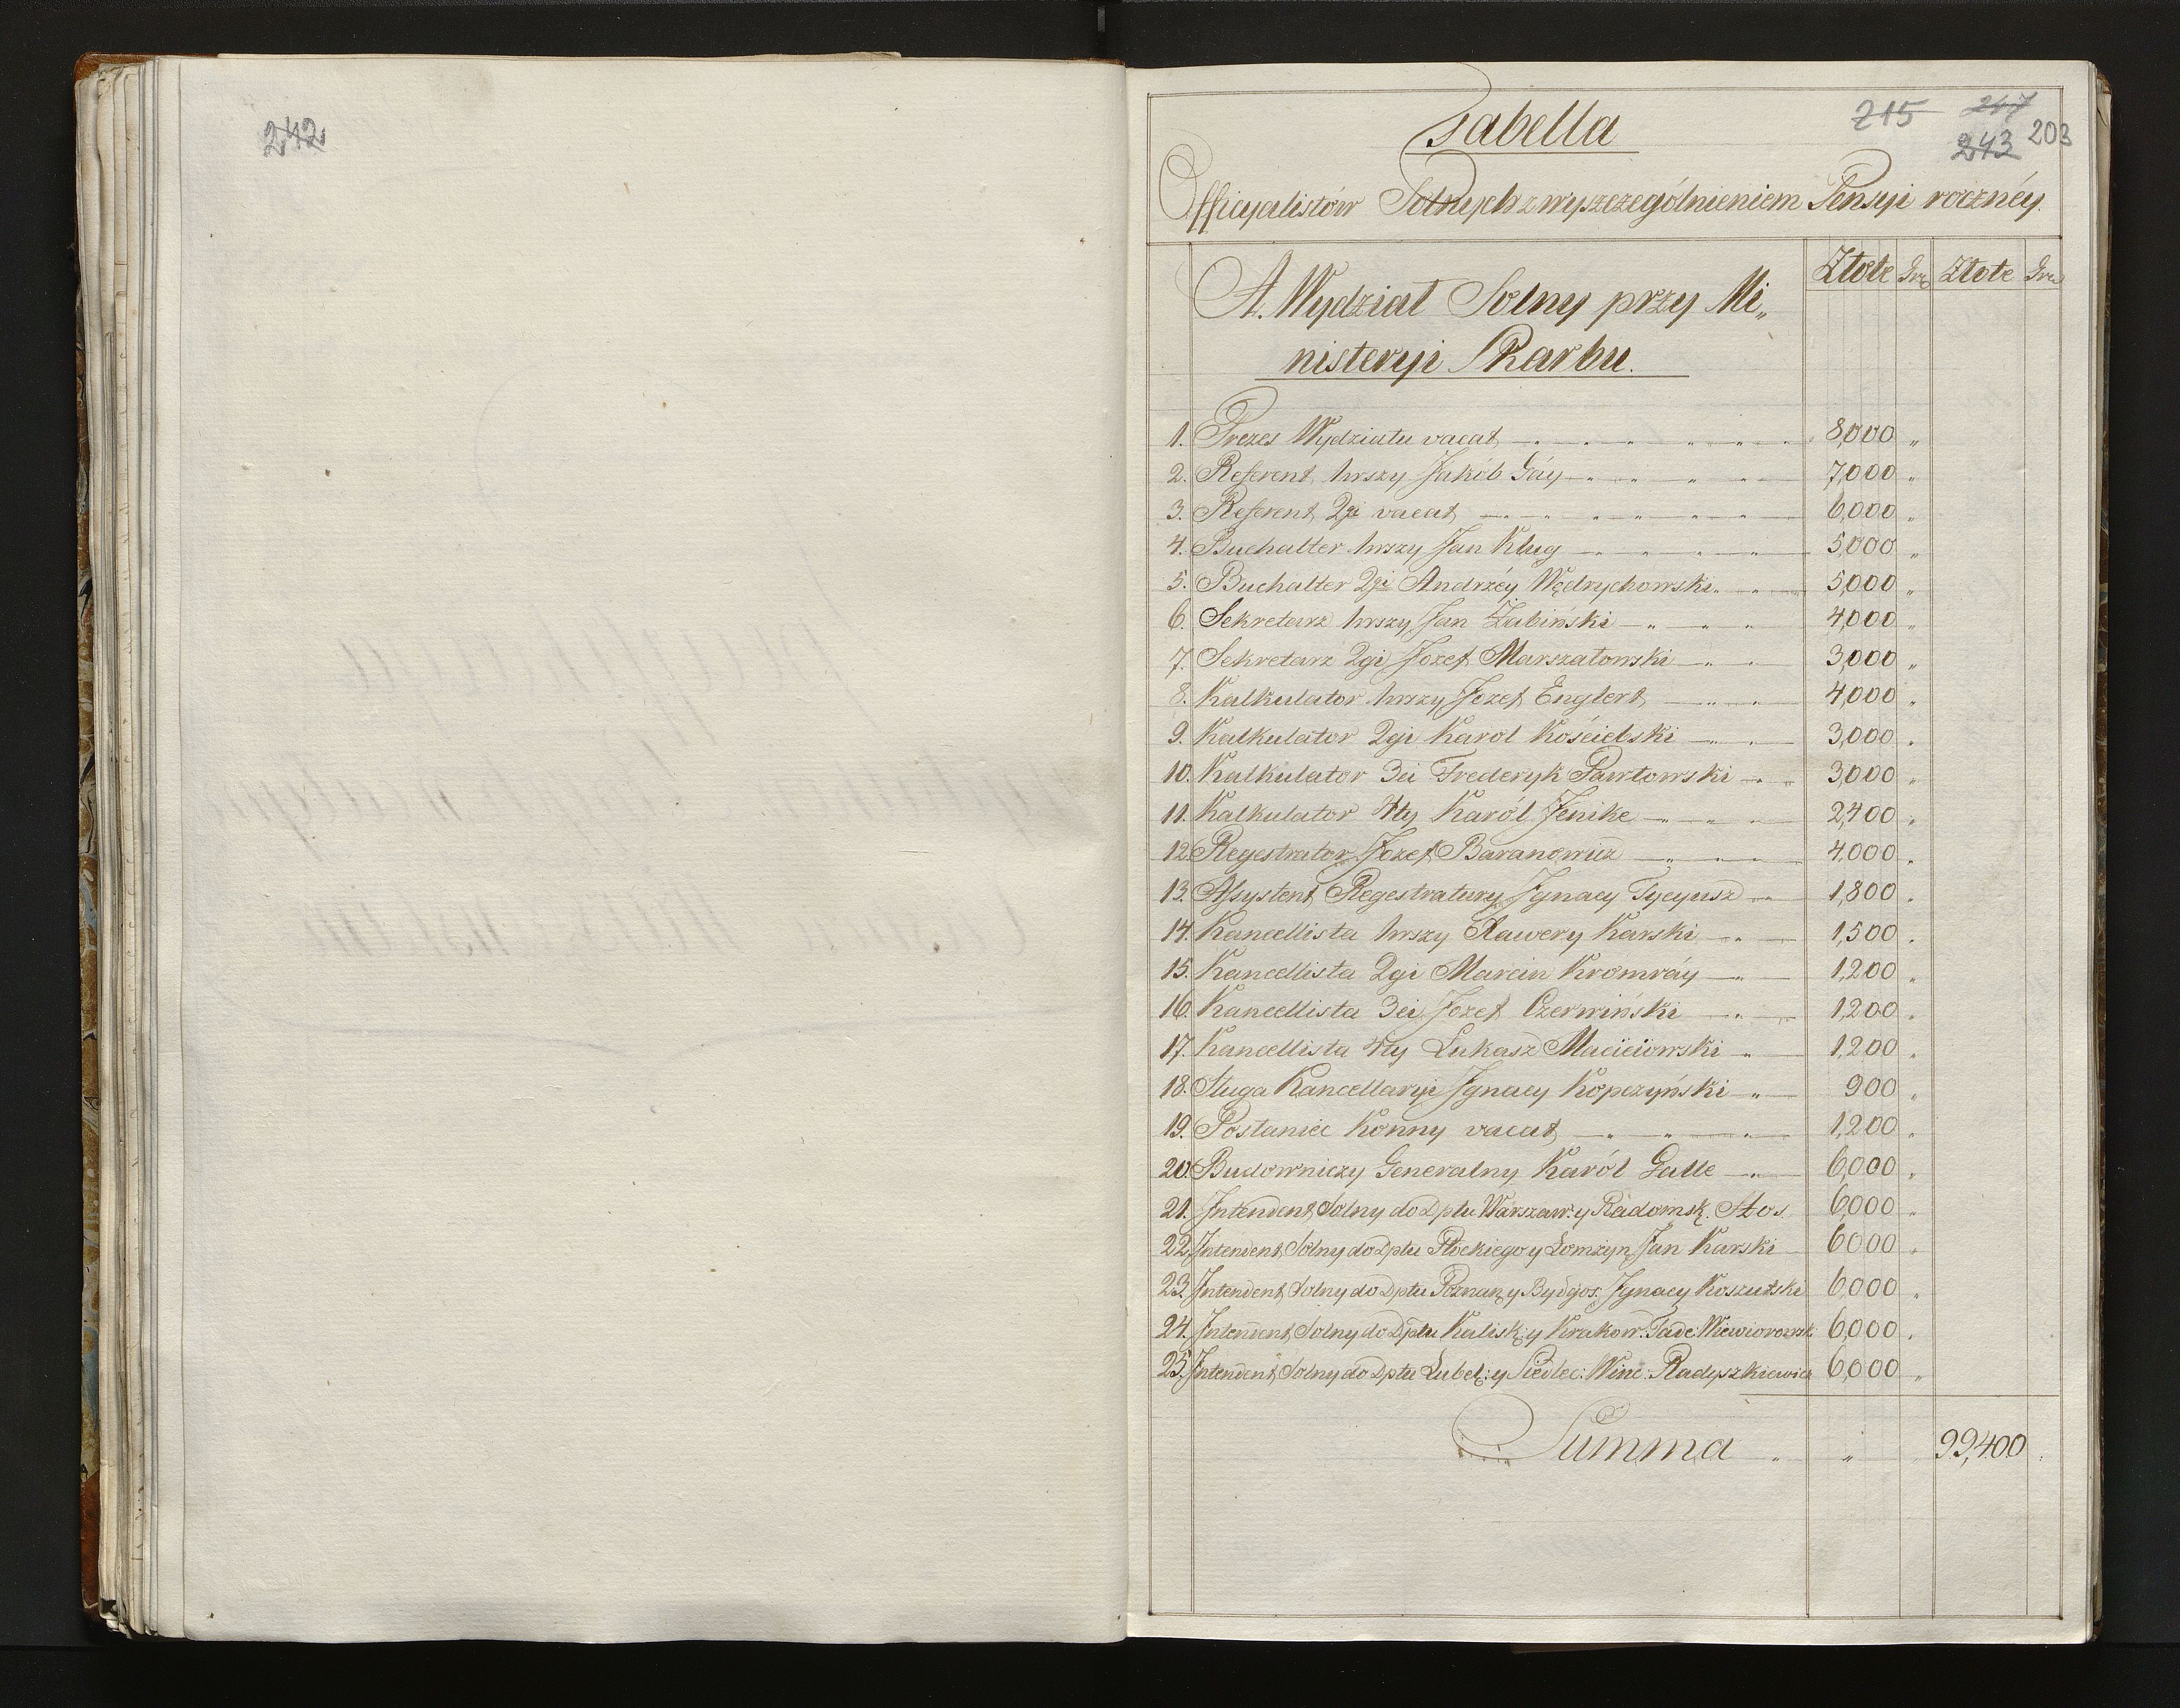 242
215 247
243 203
Tabella
Officyalistów Solnych z wyszczególnieniem Pensyi rocznéy.
Złote Gr. Złote Gr.
A. Wydział Solny przy Mi„
nisteryi Skarbu.
1. Prezes Wydziału vacat 8,000 „
2. Referent 1wszy Jakób Gáy 7,000 „
3. Referent 2gi vacat 6,000 „
4. Buchalter 1wszy Jan Klug 5,000 „
5. Buchalter 2gi Andrzéy Wędrychowski 5,000 „
6. Sekretarz 1wszy Jan Żabiński 4,000 „
7. Sekretarz 2gi Jozef Marszałowski 3,000 „
8. Kalkulator 1wszy Jozef Englert 4,000 „
9. Kalkulator 2gi Karol Kościelski 3,000 „
10. Kalkulator 3ci Frederyk Pawłowski 3,000 „
11. Kalkulator 4ty Karól Jenike 2,400 „
12. Regestrator Jozef Baranowicz 4,000 „
13. Assystent Regestratury Ignacy Tycyusz 1,800 „
14. Kancellista 1wszy Xawery Karski 1,500 „
15. Kancellista 2gi Marcin Kromráy 1,200 „
16. Kancellista 3ci Jozef Czerwiński 1,200 „
17. Kancellista 4ty Łukasz Macieiowski 1,200 „
18. Sługa Kancellaryi Ignacy Kopczyński 900 „
19. Posłaniec Konny vacat 1,200 „
20. Budowniczy Generalny Karól Galle 6,000 „
21. Intendent Solny do Dptu Warszaw: y Radomsk: Stos 6,000 „
22. Intendent Solny do Dptu Płockiego y Łomżyn: Jan Karski 6,000 „
23. Intendent Solny do Dptu Poznań: y Bydgos: Ignacy Koszutski 6,000 „
24. Intendent Solny do Dptu Kalisk: y Krakow: Tade: Wiewiorowski 6,000 „
25. Intendent Solny do Dptu Lubel: y Siedlec: Winc: Radyszkiewicz 6,000 „
Summa „ „ 99,400